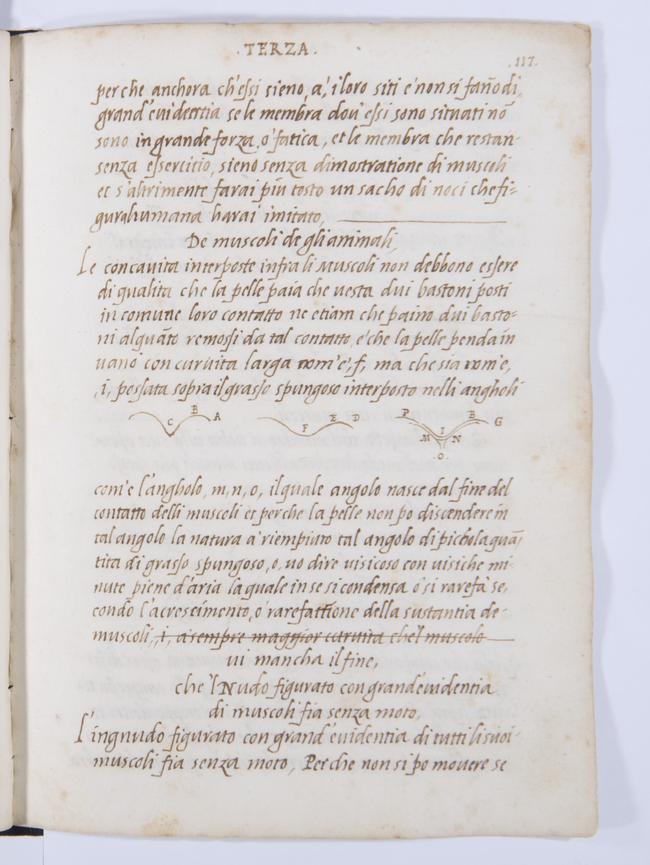 . TERZA .
. 117.
perche anchora ch'essi sieno, a, i loro siti e' non si fan̄o di
grand'euidentia se le membra dou'essi sono situati nō
sono in grande forza, o' fatica, et le membra che restan-
senza essercitio, sieno senza dimostratione di muscoli
et s'altrimente farai piu tosto un sacho di noci che fi-
gura humana harai imitato,
De muscoli de gli animali,
Le concauita interposte infra li muscoli non debbono essere
di qualita che la pelle paia che uesta dui bastoni posti
in comune loro contatto ne etiam che paino dui basto-
ni alquāto remossi da tal contatto, e' che la pelle penda in
uano con curuita larga com'e', f, ma che sia com'e,
,i, possata sopra il grasso spungoso interposto nelli angholi
C B A
F E D
P M I N B G
.O.
com'e l'angholo, m, n, o, il quale angolo nasce dal fine del
contatto delli muscoli et perche la pelle non po discendere in
tal angolo la natura a' riempiuto tal angolo di pichola quā
tita di grasso spungoso, o, uo dire visicoso con uisiche mi-
nute piene d'aria la quale in se si condensa o' si rarefà se,
condo l'acrescimento, o' rarefattione della sustantia de-
muscoli, ,i, a' sempre maggior curuita che'l muscolo
ui mancha il fine,
che l'Nudo figurato con grand'euidentia
di muscoli fia senza moto,
L'ingnudo figurato con grand'euidentia di tutti li suoi
muscoli fia senza moto, Perche non si po mouere se